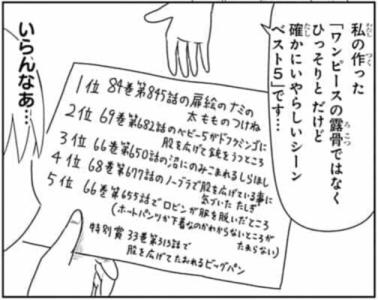 私の作った
「ワンピースの露骨ではなく
ひっそりとだけど
確かにいやらしいシーン
ベスト5」です…
いらんなあ…
1位 84巻第845話の扉絵のナミの
太もものつけね
2位 69巻第682話のベビー5がドフラミンゴに
股を広げて銃をうつところ
3位 66巻第650話の沼にのみこまれるしらほし
4位 68巻第677話のノーブラで股を広げている事に
気づいた たしぎ
5位 66巻第655話でロビンが服を脱いだところ
(ホットパンツか下着なのかわからないところが
たまらない)
特別賞 33巻第313話で
股を広げてたおれるビッグパン